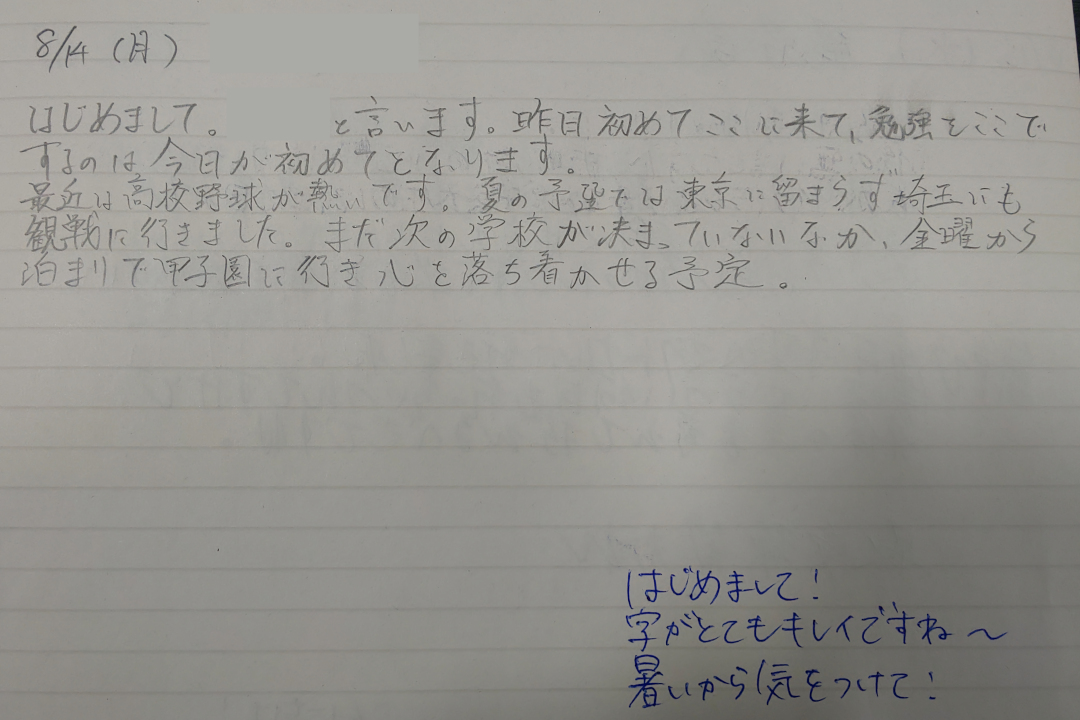 8/14 (月)
はじめまして。 と言います。昨日初めてここに来て、勉強をここで
するのは今日が初めてとなります。
最近は高校野球が熱いです。夏の予選では東京に留まらず埼玉にも
観戦に行きました。まだ次の学校が決まっていないなか、金曜から
泊まりで甲子園に行き心を落ち着かせる予定。
はじめまして!
字がとてもキレイですね〜
暑いから気をつけて!